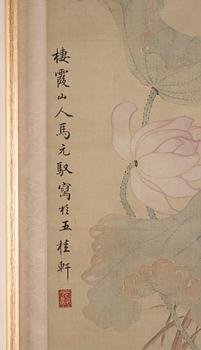 棲霞山人馬元馭寫於五桂軒